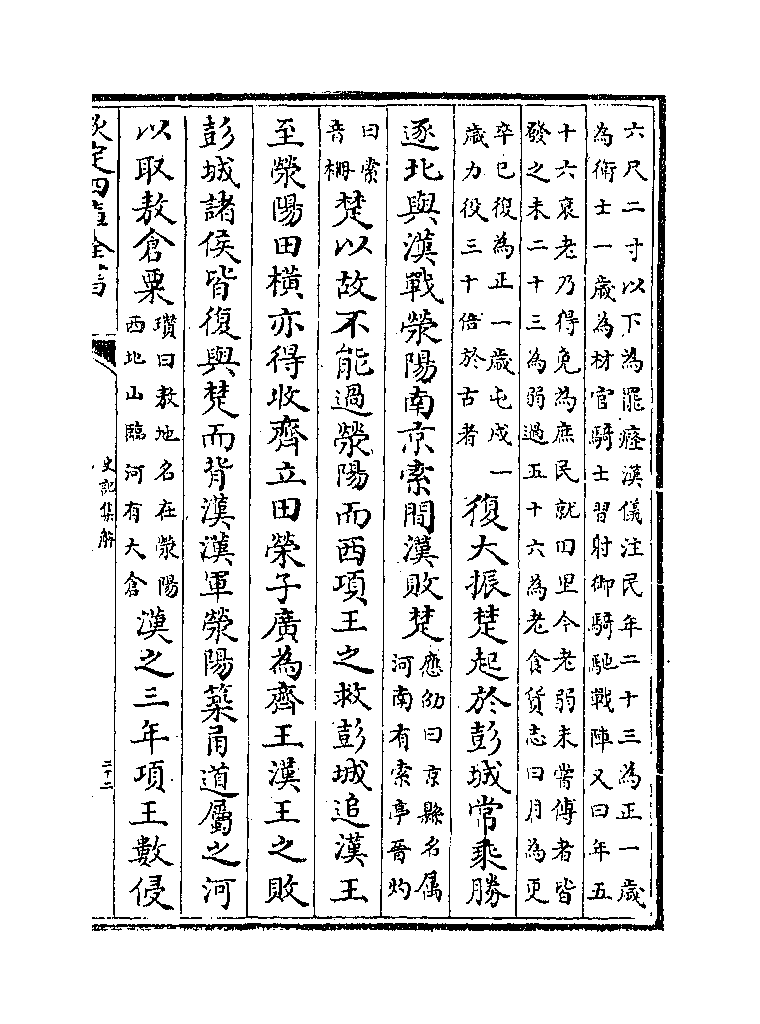 六尺二寸以下為罷癃漢儀注民年二十三為正一歲
為衛士一歲為材官騎士習射御騎馳戰陣又曰年五
十六衰老乃得免為庶民就田里今老弱未嘗傅者皆
發之未二十三為弱過五十六為老食貨志曰月為更
卒已復為正一歲屯戍一
歲力役三十倍於古者
復大振楚起於彭城常乘勝
逐北與漢戰滎陽南京索間漢敗楚
應劭曰京縣名属
河南有索亭晉灼
曰索
音柵
楚以故不能過滎陽而西項王之救彭城追漢王
至滎陽田橫亦得收齊立田榮子廣為齊王漢王之敗
彭城諸侯皆復與楚而背漢漢軍滎陽築甬道屬之河
以取敖倉粟
瓚曰敖地名在滎陽
西北山臨河有大倉
漢之三年項王數侵
欽定四庫全書
史記集解
二十二